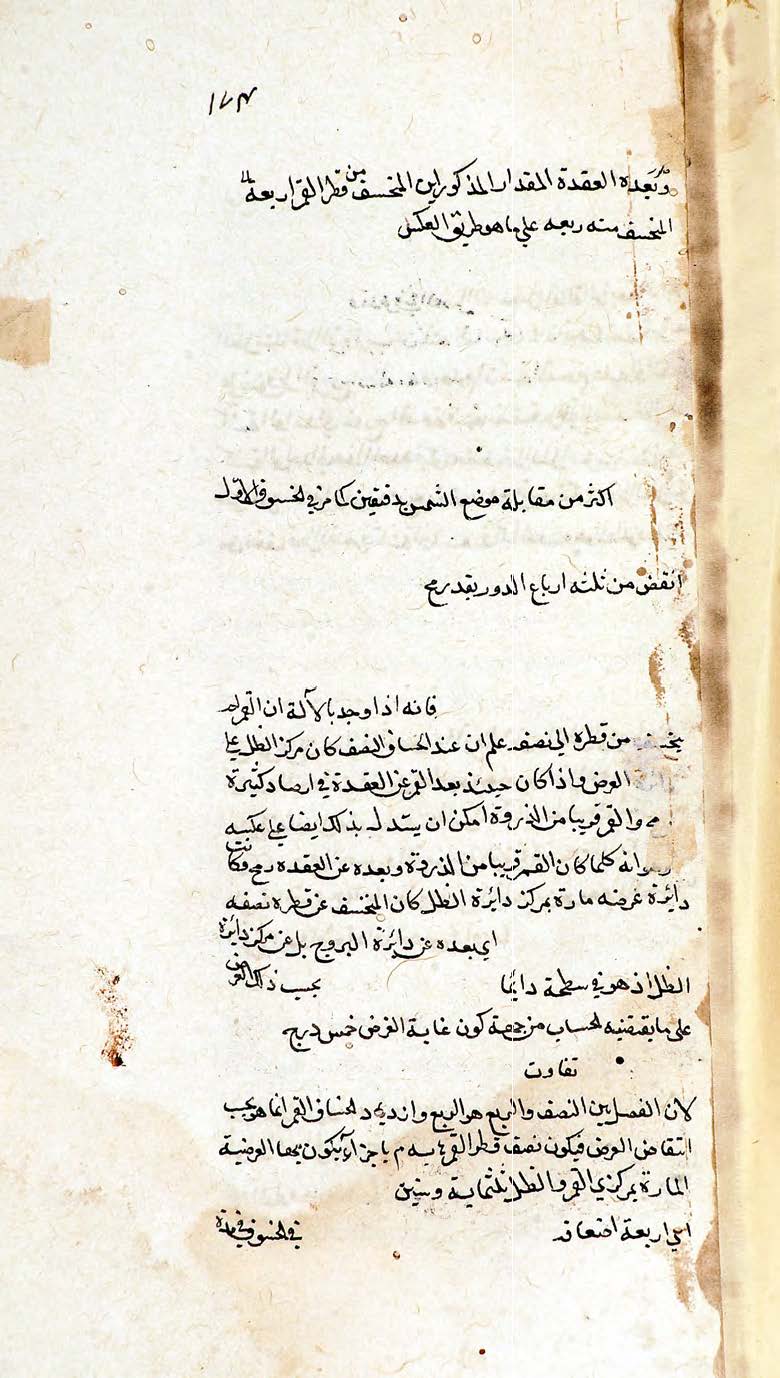 ١٧٣
وبعده العقدة المقدار المذكور اين المنخسف من قطر القمر اربعه
المنخسف منه ربعه على ما هو طريق العكس
اكثر من مقابلة موضع الشمس بدقيقين كما مر في الخسوف الاول
انقص من ثلثه ارباع الدور بقدر مح
فانه اذا وجد بالآلة ان القمر
من قطره الى نصفه علم ان عند انخساف النصف كان مركز الظل على
العرض واذا كان حينئذ بعد القمر عن العقدة في ارصاد كثيرة
والقمر قريبا من الذروة امكن ان يستدل بذلك ايضا على عكسه
وانه كلما كان القمر قريبا من الذروة وبعده عن العقده وكانت
دائرة عرضه مارة بمركز دائرة الظل كان المنخسف عن قطره نصفه
اي بعده عن دائرة البروج بل عن مركز دائرة
الظل اذ هو في سطحه دايما بحسب ذلك العرض
على ما يقتضيه الحساب من جهة كون غاية العرض خمس درج
تفاوت
لان الفصل بين النصف والربع هو الربع وازدياد انخساف القمر انما هو بحسب
انتقاض العرض فيكون نصف قطر القمر يه م باجزاء يكون بها العرضية
المارة بمركزي القمر والظل ثلثماية وستين
اي اربعة اضعاف في الخسوف في مدة